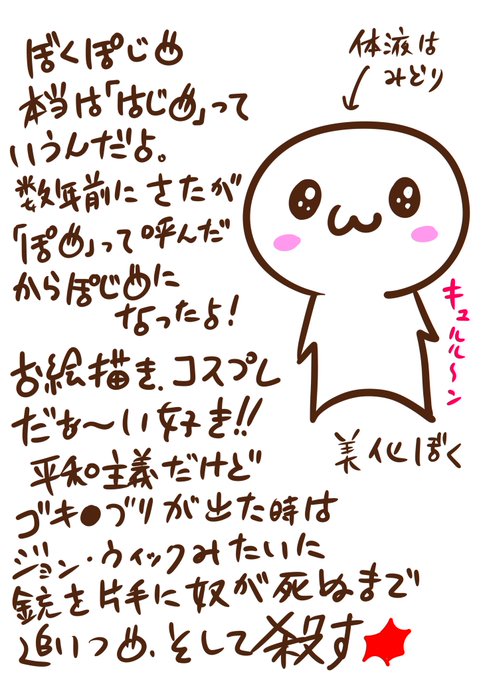 ぼくぽじめ
本当は「はじめ」って
いうんだよ。
数年前にさたが
「ぽめ」って呼んだ
からぽじめに
なったよ!
お絵描き、コスプレ
だぁ〜い好き!!
平和主義だけど
ゴキ●ブリが出た時は
ジョン・ウィックみたいに
銃を片手に奴が死ぬまで
追いつめ、そして殺す
体液は
みどり
キュルル〜ン
美化ぼく